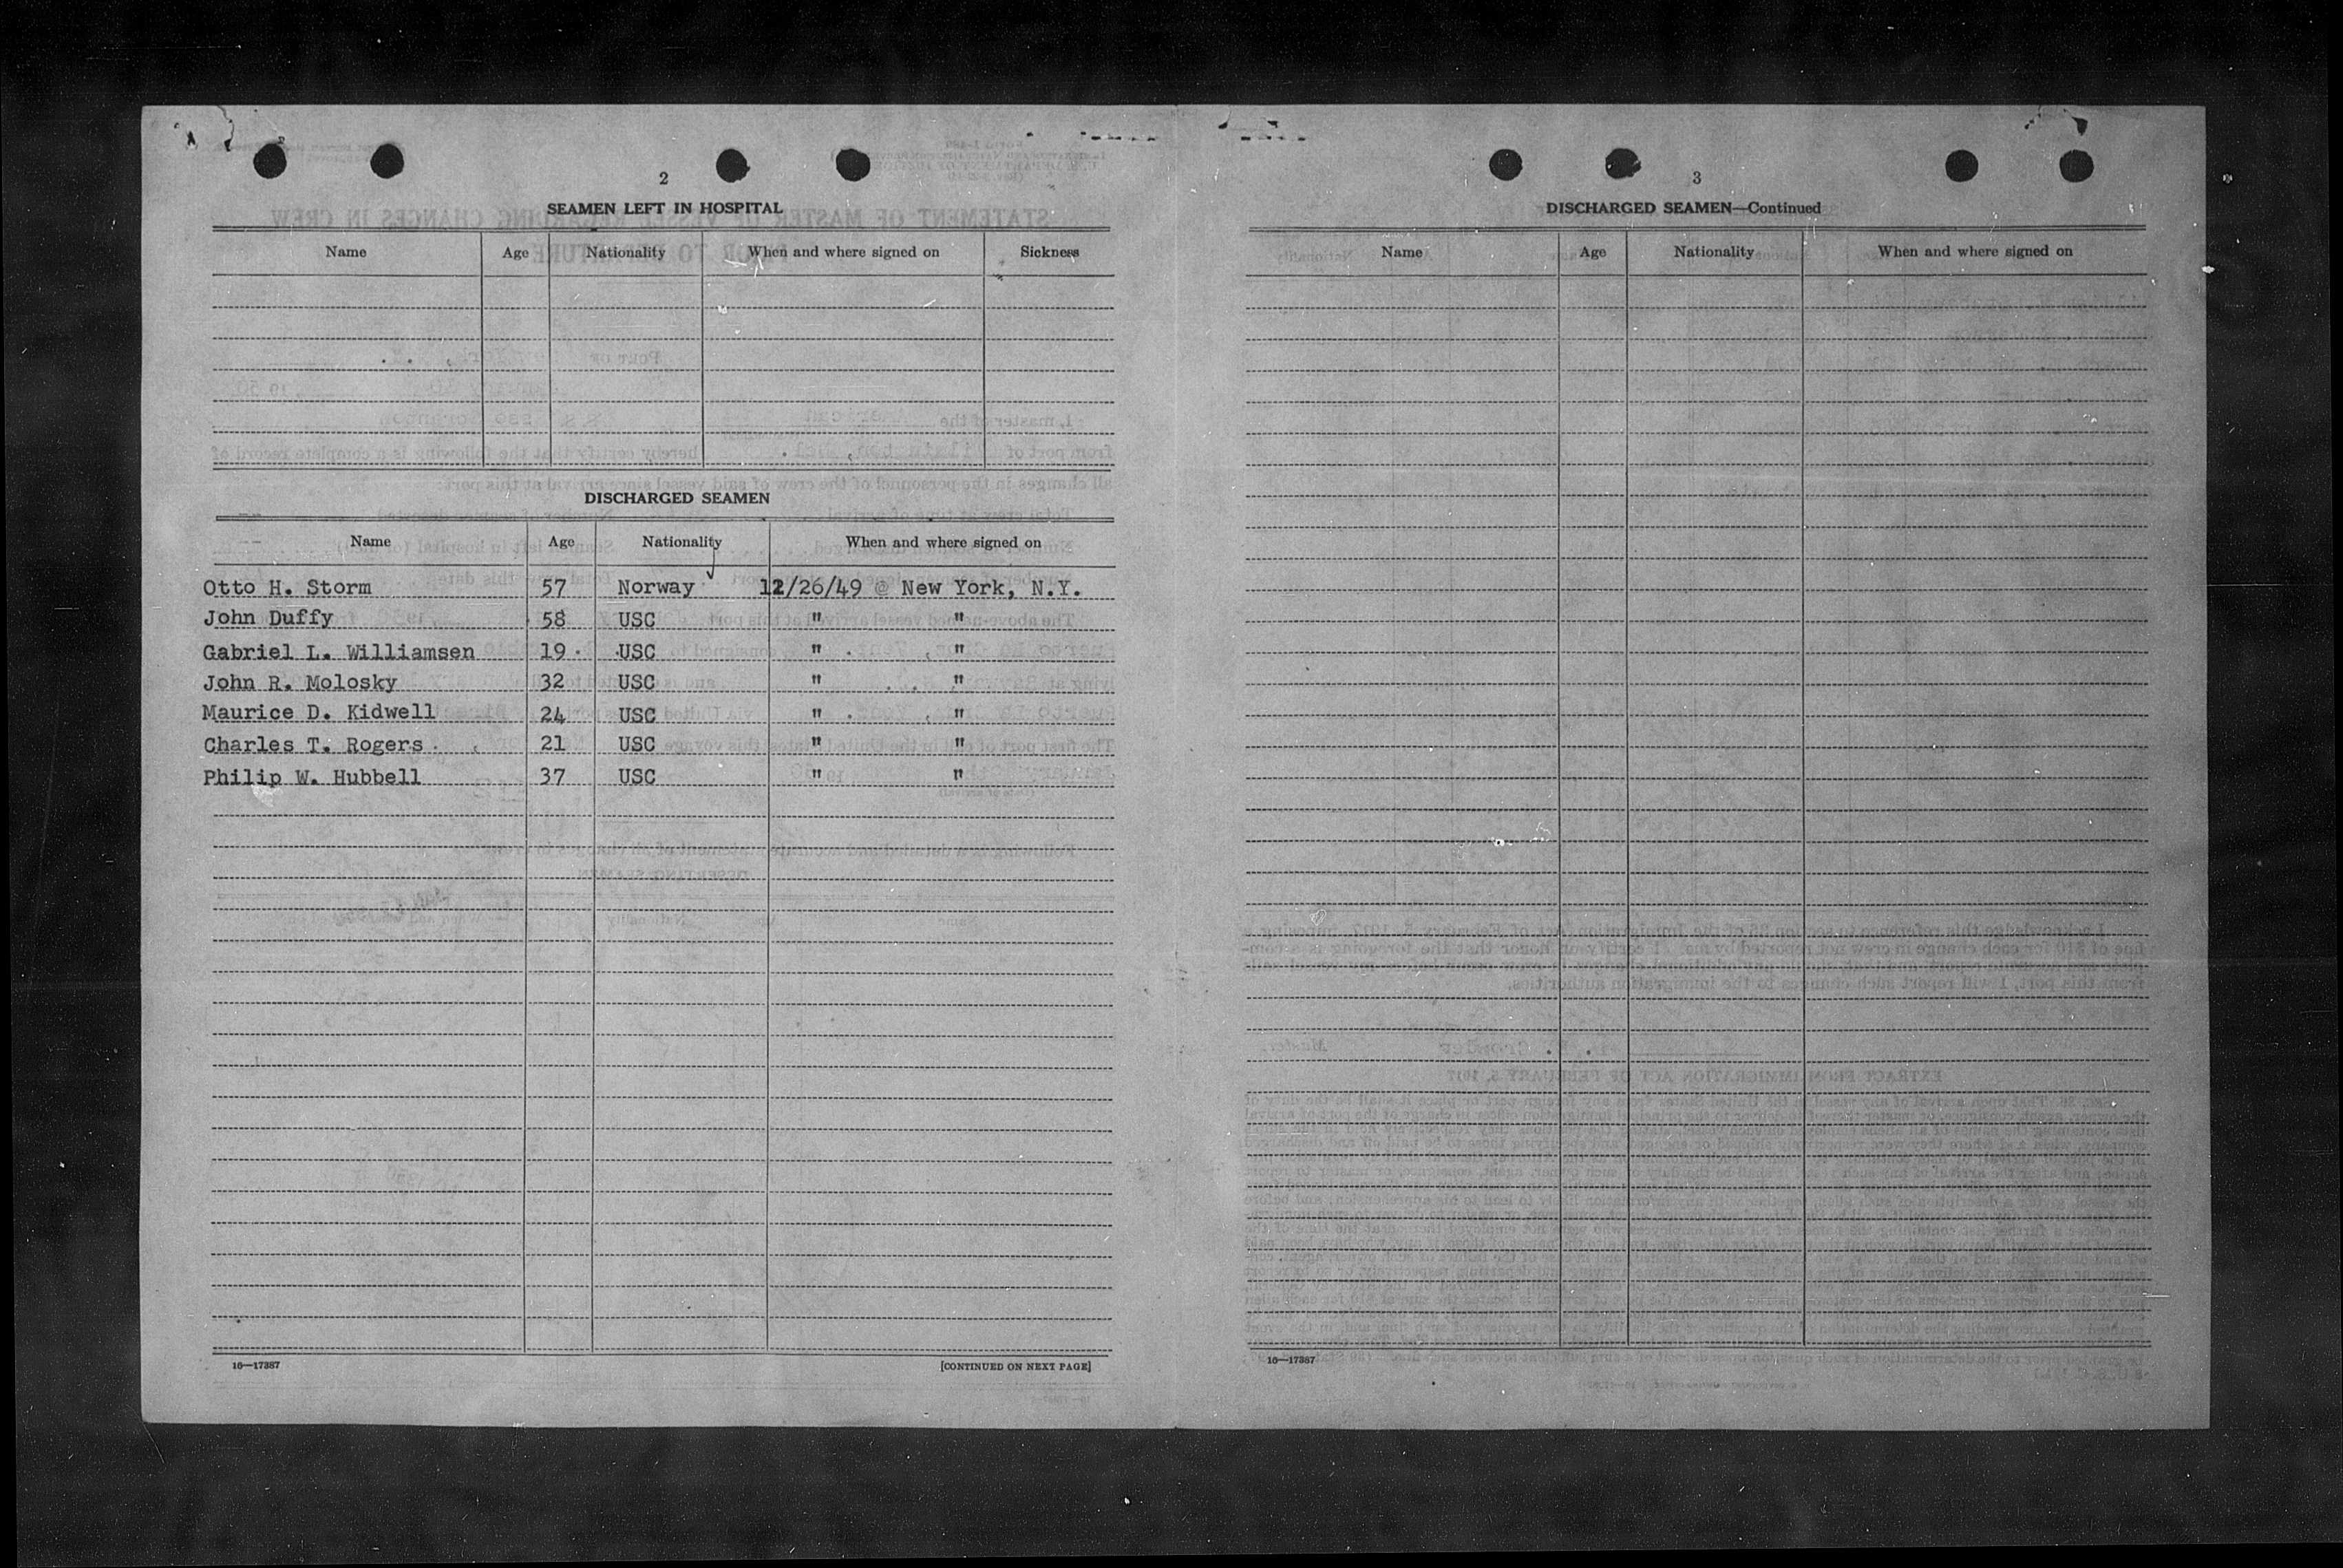 2
SEAMEN LEFT IN HOSPITAL
Name Age Nationality When and where signed on Sickness
DISCHARGED SEAMEN
Name Age Nationality When and where signed on
Otto H. Storm 57 Norway 12/26/49 @ New York, N.Y.
John Duffy 58 USC " "
Gabriel L. Williamsen 19 USC " "
John R. Molosky 32 USC " "
Maurice D. Kidwell 24 USC " "
Charles T. Rogers 21 USC " "
Philip W. Hubbell 37 USC " "
16—17387 [CONTINUED ON NEXT PAGE]
3
DISCHARGED SEAMEN—Continued
Name Age Nationality When and where signed on
16—17387